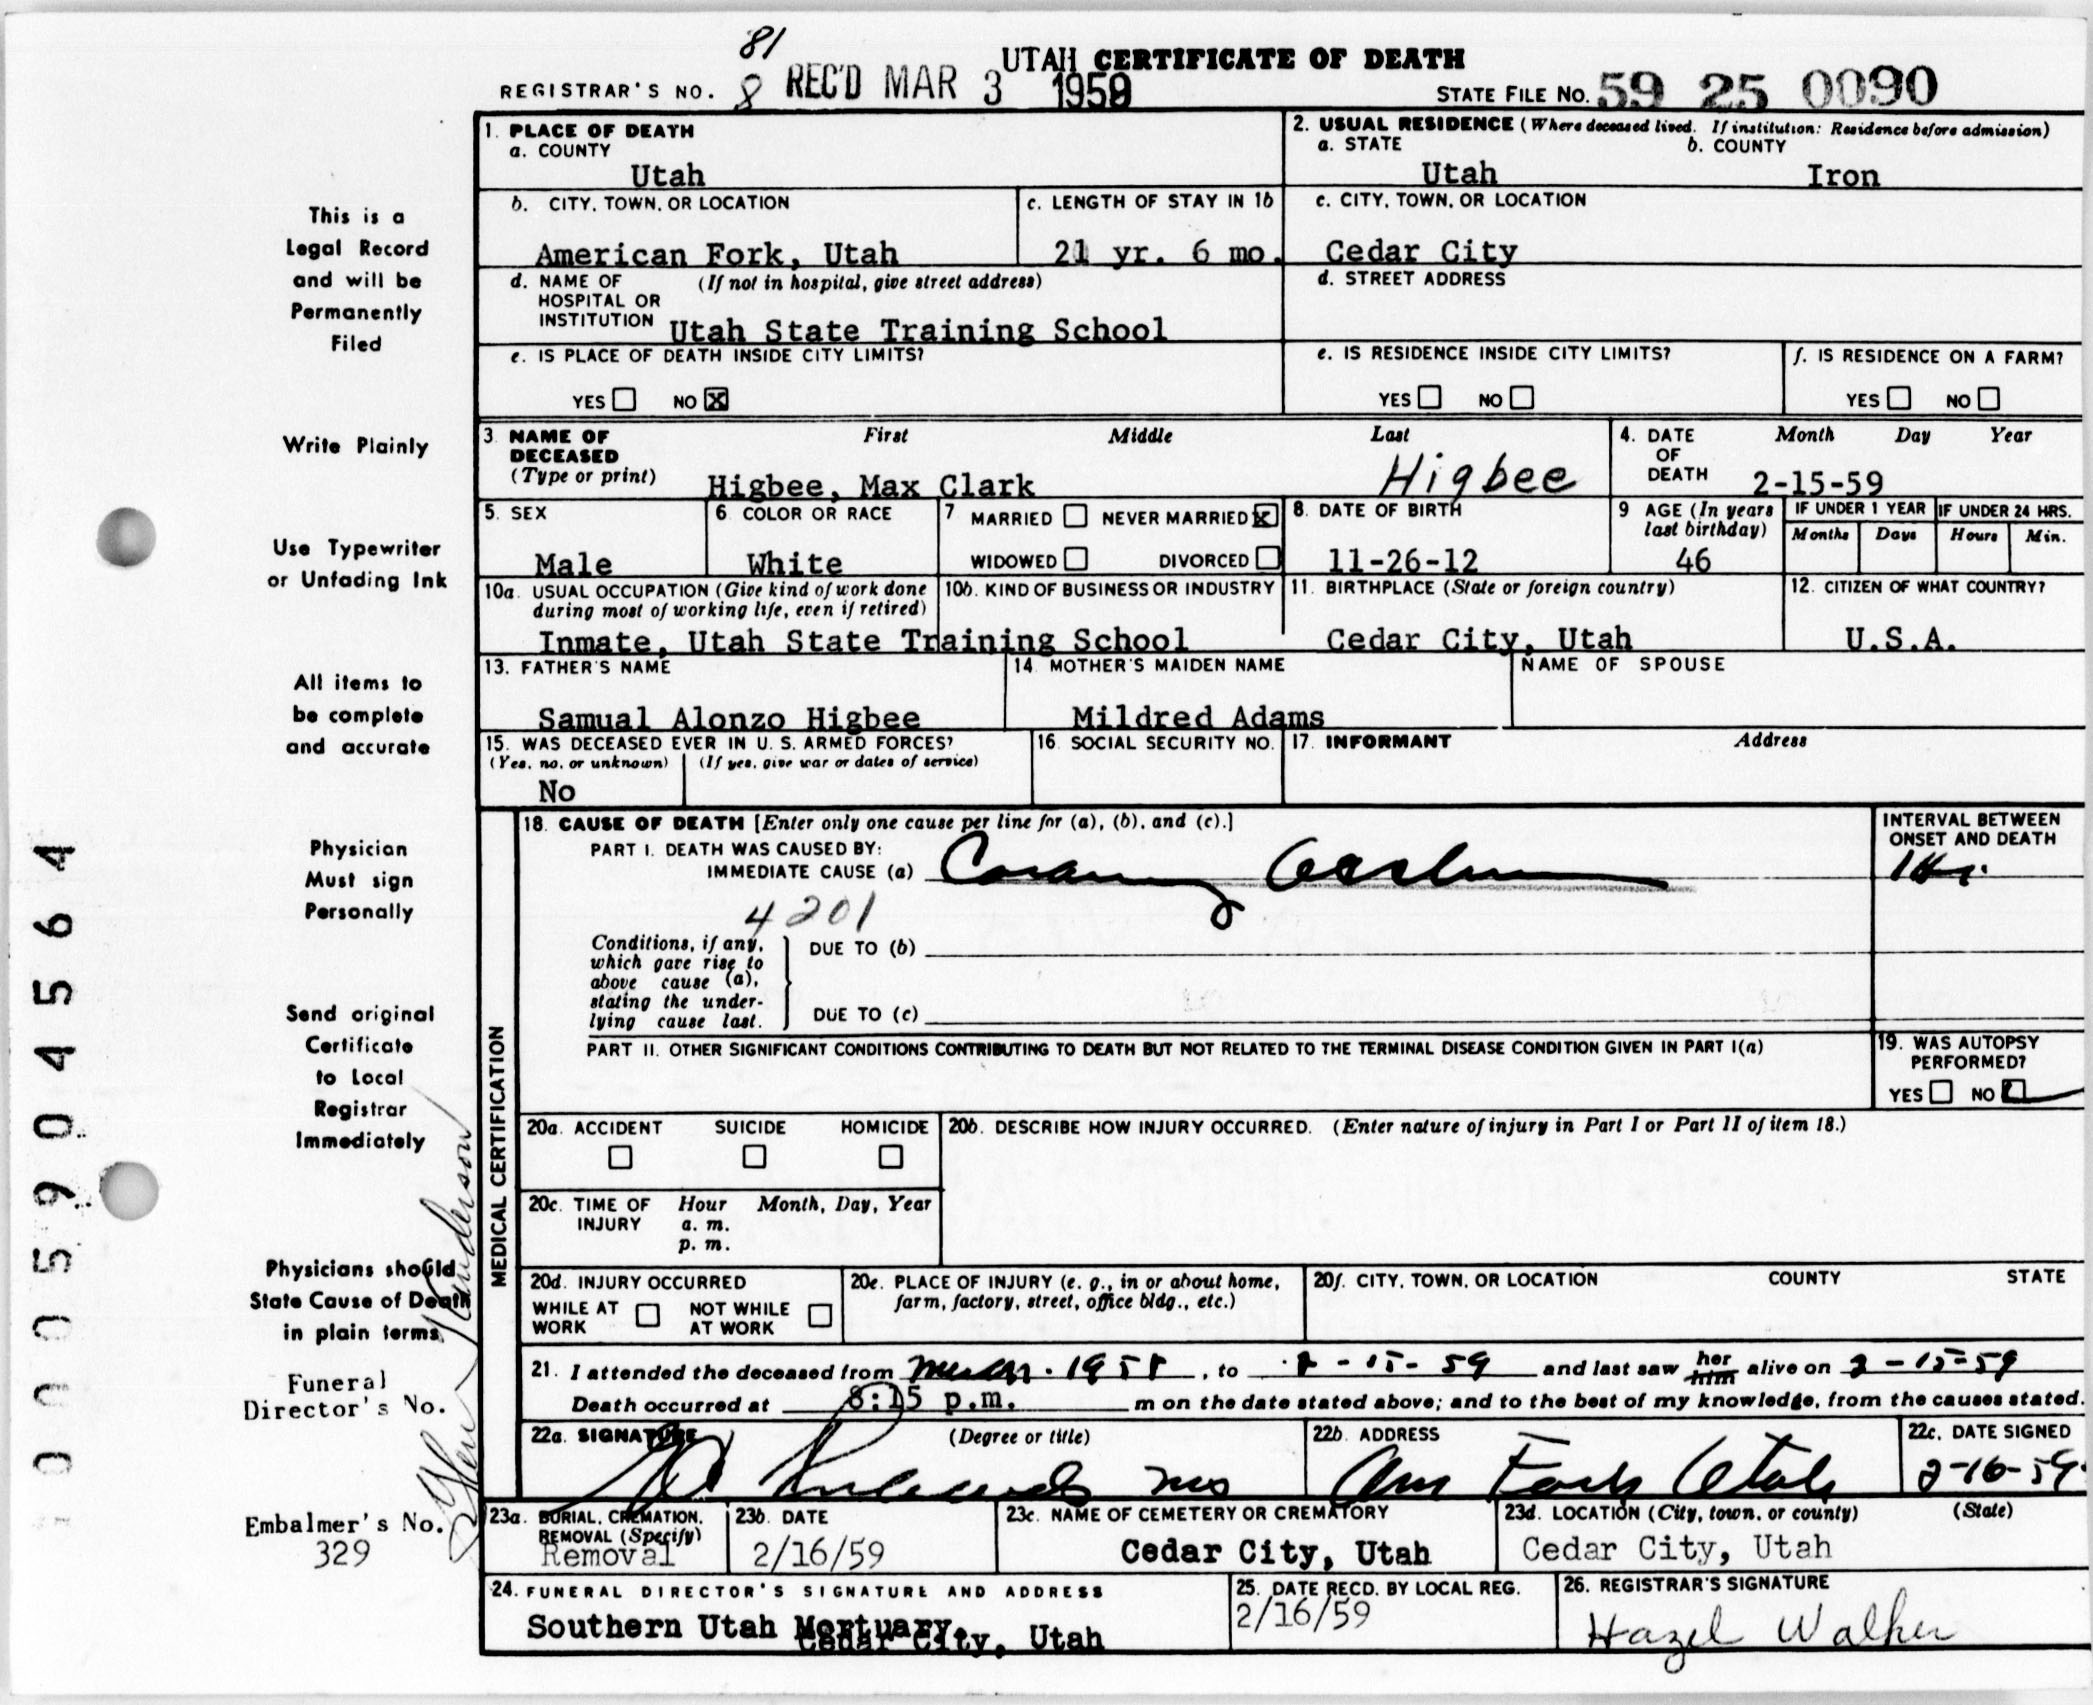 81
UTAH CERTIFICATE OF DEATH
REGISTRAR'S NO. 8 REC'D MAR 3 1959 STATE FILE No. 59 25 0090
1. PLACE OF DEATH
a. COUNTY
Utah
2. USUAL RESIDENCE (Where deceased lived. If institution: Residence before admission)
a. STATE b. COUNTY
Utah Iron
b. CITY, TOWN, OR LOCATION
American Fork, Utah
c. LENGTH OF STAY IN 1b
21 yr. 6 mo.
c. CITY, TOWN, OR LOCATION
Cedar City
d. NAME OF (If not in hospital, give street address)
HOSPITAL OR
INSTITUTION Utah State Training School
d. STREET ADDRESS
e. IS PLACE OF DEATH INSIDE CITY LIMITS?
YES NO X
e. IS RESIDENCE INSIDE CITY LIMITS?
YES NO
f. IS RESIDENCE ON A FARM?
YES NO
3 NAME OF First Middle Last
DECEASED
(Type or print) Higbee, Max Clark Higbee
4. DATE Month Day Year
OF
DEATH 2-15-59
5. SEX
Male
6 COLOR OR RACE
White
7 MARRIED NEVER MARRIED X
WIDOWED DIVORCED
8. DATE OF BIRTH
11-26-12
9 AGE (In years
last birthday)
46
IF UNDER 1 YEAR
Months Days
IF UNDER 24 HRS.
Hours Min.
10a. USUAL OCCUPATION (Give kind of work done
during most of working life, even if retired)
10b. KIND OF BUSINESS OR INDUSTRY
Inmate, Utah State Training School
11. BIRTHPLACE (State or foreign country)
Cedar City, Utah
12. CITIZEN OF WHAT COUNTRY?
U.S.A.
13. FATHER'S NAME
Samual Alonzo Higbee
14 MOTHER'S MAIDEN NAME
Mildred Adams
NAME OF SPOUSE
15. WAS DECEASED EVER IN U. S. ARMED FORCES?
(Yes, no, or unknown) (If yes, give war or dates of service)
No
16. SOCIAL SECURITY NO.
17. INFORMANT Address
MEDICAL CERTIFICATION
18. CAUSE OF DEATH [Enter only one cause per line for (a), (b), and (c).]
PART I. DEATH WAS CAUSED BY:
IMMEDIATE CAUSE (a)
4201
INTERVAL BETWEEN
ONSET AND DEATH
1 Hr.
Conditions, if any,
which gave rise to
above cause (a),
stating the under-
lying cause last.
DUE TO (b)
DUE TO (c)
PART II. OTHER SIGNIFICANT CONDITIONS CONTRIBUTING TO DEATH BUT NOT RELATED TO THE TERMINAL DISEASE CONDITION GIVEN IN PART I(a)
19. WAS AUTOPSY
PERFORMED?
YES NO
20a. ACCIDENT SUICIDE HOMICIDE
20b. DESCRIBE HOW INJURY OCCURRED. (Enter nature of injury in Part I or Part II of item 18.)
20c. TIME OF Hour Month, Day, Year
INJURY a. m.
p. m.
20d. INJURY OCCURRED
WHILE AT NOT WHILE
WORK AT WORK
20e. PLACE OF INJURY (e. g., in or about home,
farm, factory, street, office bldg., etc.)
20f. CITY, TOWN, OR LOCATION COUNTY STATE
21. I attended the deceased from 1958, to 2-15-59 and last saw her him alive on 2-15-59
Death occurred at 8:15 p.m. m on the date stated above; and to the best of my knowledge, from the causes stated.
22a. SIGNATURE (Degree or title)
22b. ADDRESS
Am Fork Utah
22c. DATE SIGNED
2-16-59
23a. BURIAL, CREMATION,
REMOVAL (Specify)
Removal
23b. DATE
2/16/59
23c. NAME OF CEMETERY OR CREMATORY
Cedar City, Utah
23d. LOCATION (City, town, or county) (State)
Cedar City, Utah
24. FUNERAL DIRECTOR'S SIGNATURE AND ADDRESS
Southern Utah Mortuary,
Cedar City, Utah
25. DATE RECD. BY LOCAL REG.
2/16/59
26. REGISTRAR'S SIGNATURE
Hazel Walker
This is a
Legal Record
and will be
Permanently
Filed
Write Plainly
Use Typewriter
or Unfading Ink
All items to
be complete
and accurate
Physician
Must sign
Personally
Send original
Certificate
to Local
Registrar
Immediately
Physicians should
State Cause of Death
in plain terms
Funeral
Director's No.
Embalmer's No.
329
0005904564